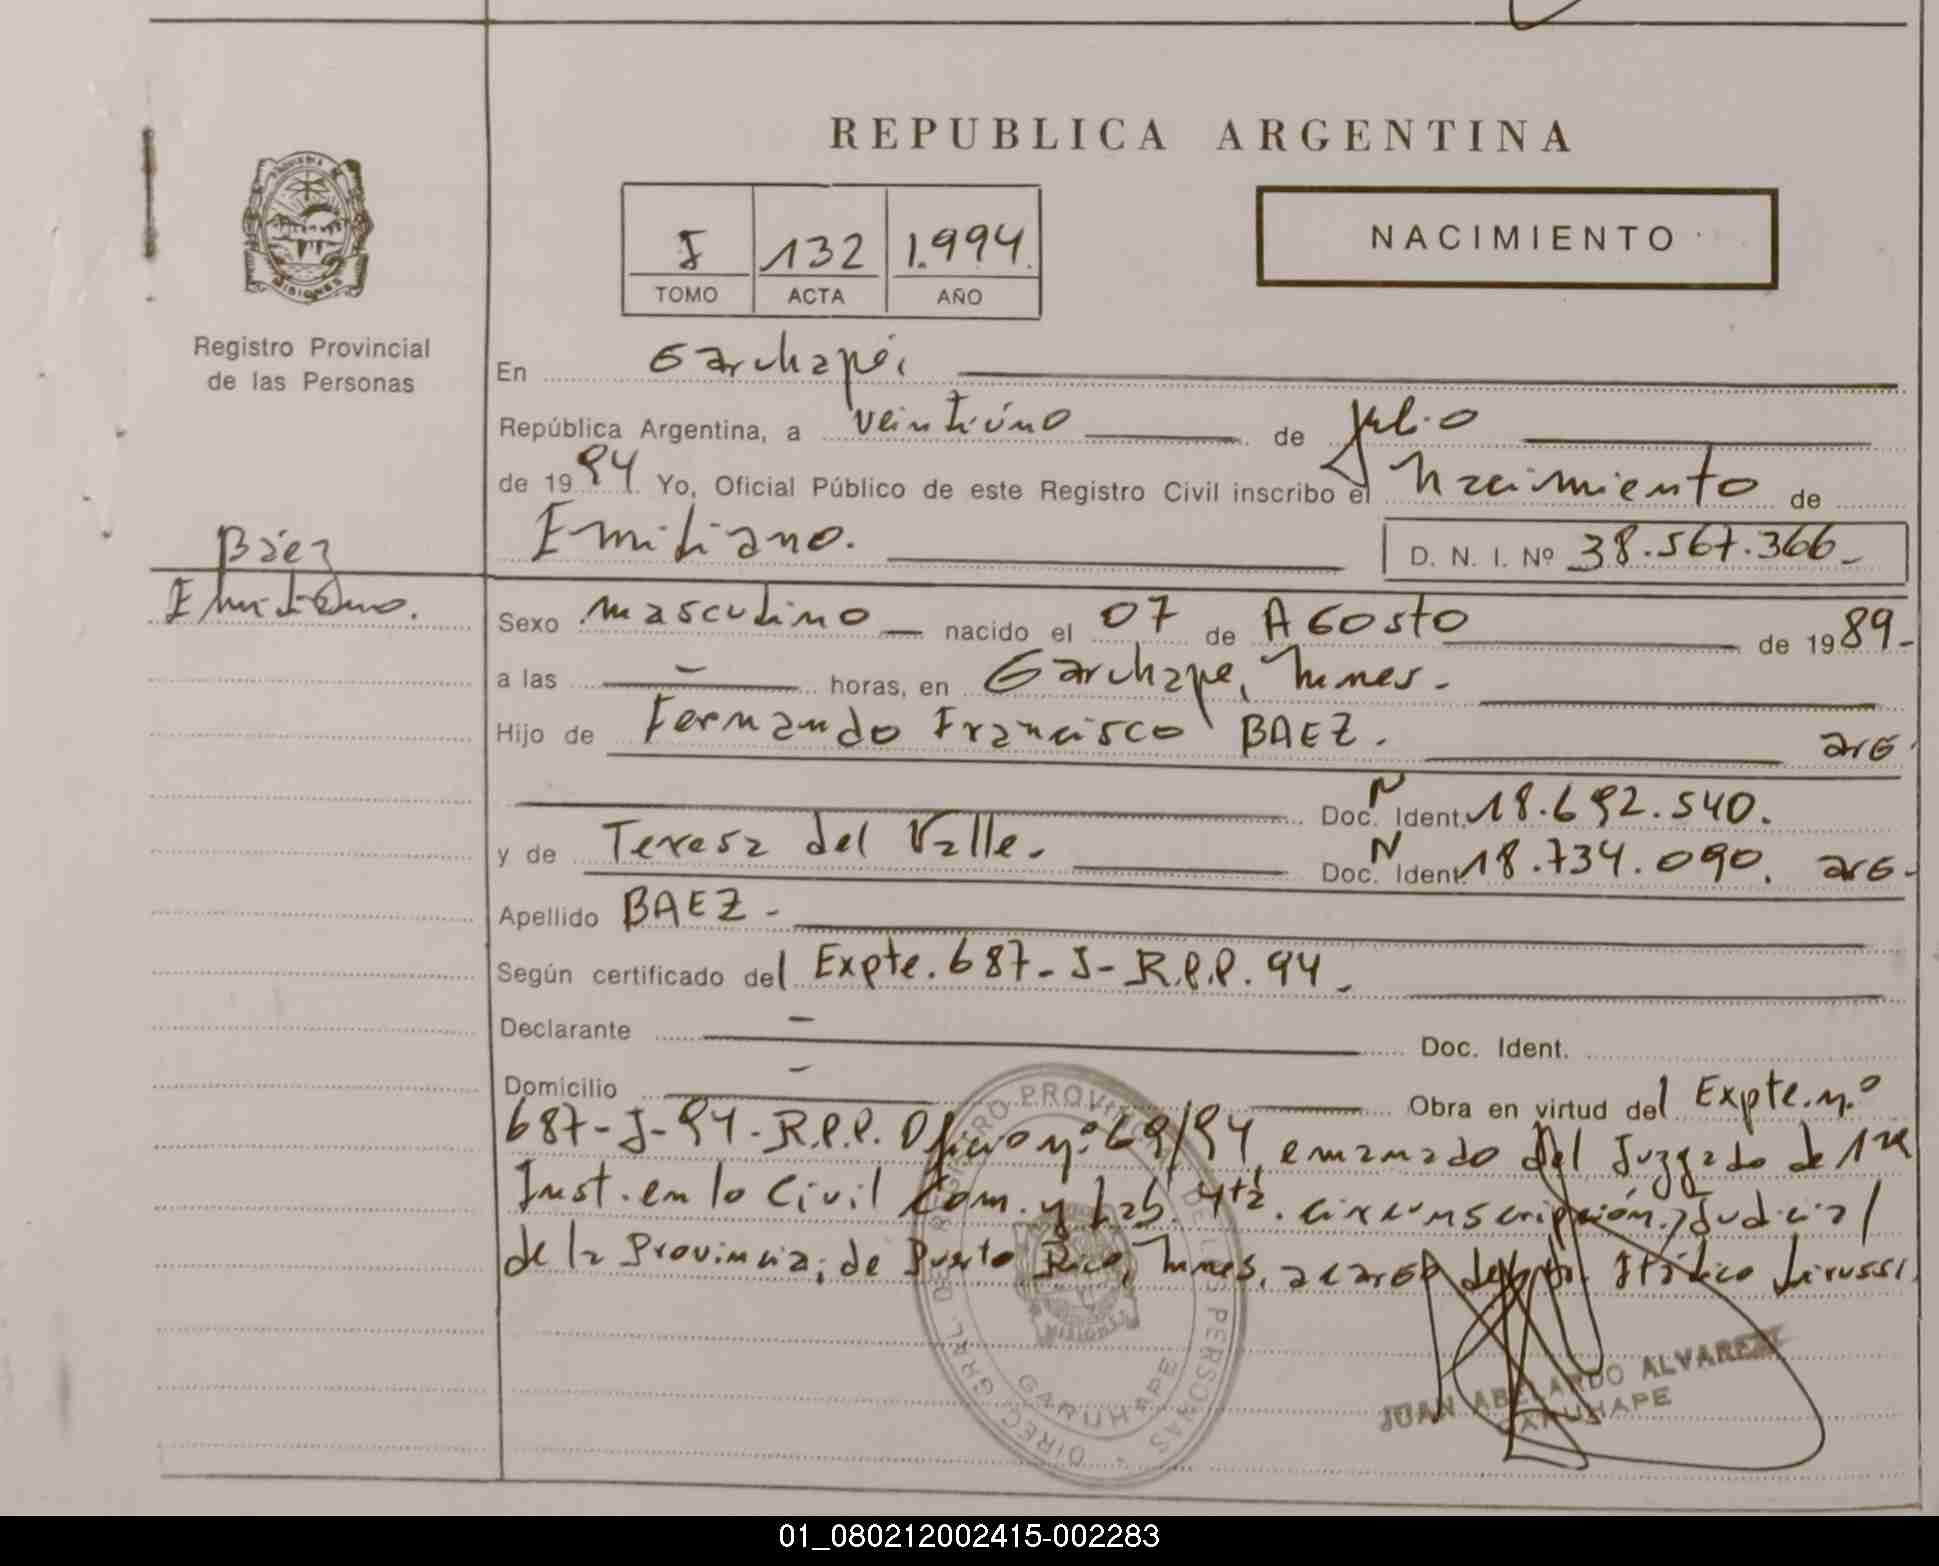 REPUBLICA ARGENTINA
NACIMIENTO
I 132 1.994.
TOMO ACTA AÑO
Registro Provincial
de las Personas
Báez
Emiliano.
En Garuhapé,
República Argentina, a veintiúno de julio
de 1994 Yo, Oficial Público de este Registro Civil inscribo el Nacimiento de
Emiliano. D. N. I. Nº 38.567.366-
Sexo masculino nacido el 07 de AGosto de 1989-
a las - horas, en Garuhape, Mnes.
Hijo de Fernando Francisco BAEZ. arG.
Doc. N Ident. 18.692.540.
y de Teresa del Valle. Doc. N Ident. 18.734.090. arG.
Apellido BAEZ -
Según certificado del Expte. 687-J-R.P.P. 94 -
Declarante - Doc. Ident.
Domicilio - Obra en virtud del Expte. nº
687-J-94-R.P.P. Oficio nº 69/94, emanado del Juzgado de 1ra
Inst. en lo Civil Com. y Lab. 4ta. circunscripción Judicial
de la Provincia, de Puerto Rico, Mnes, a carGo del Dr.
DIREC. GRAL. DE REGISTRO PROVINCIAL DE LAS PERSONAS
MISIONES
GARUHAPE
JUAN ABELARDO ALVAREZ
GARUHAPE
01_080212002415-002283